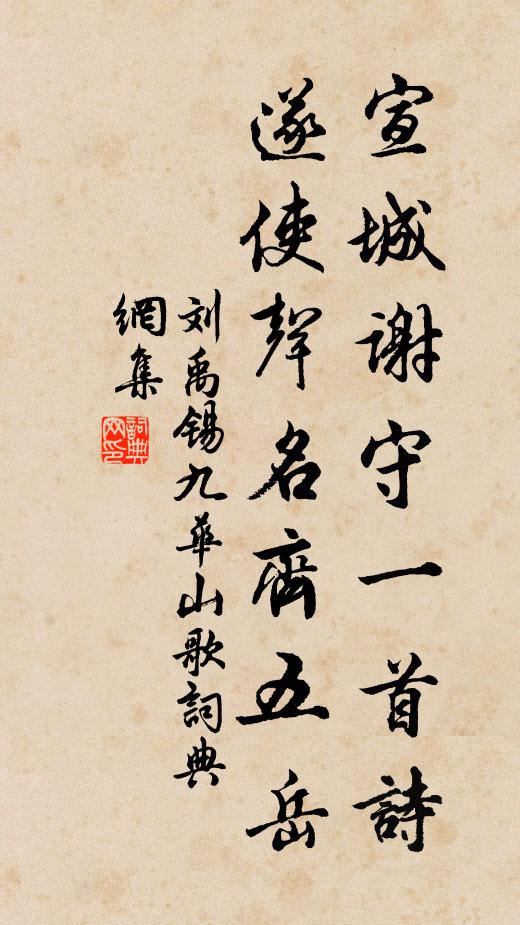 宣城謝守一首詩
遂使聲名齊五岳
刘禹锡九華山歌詞典
網集
詞典
网印